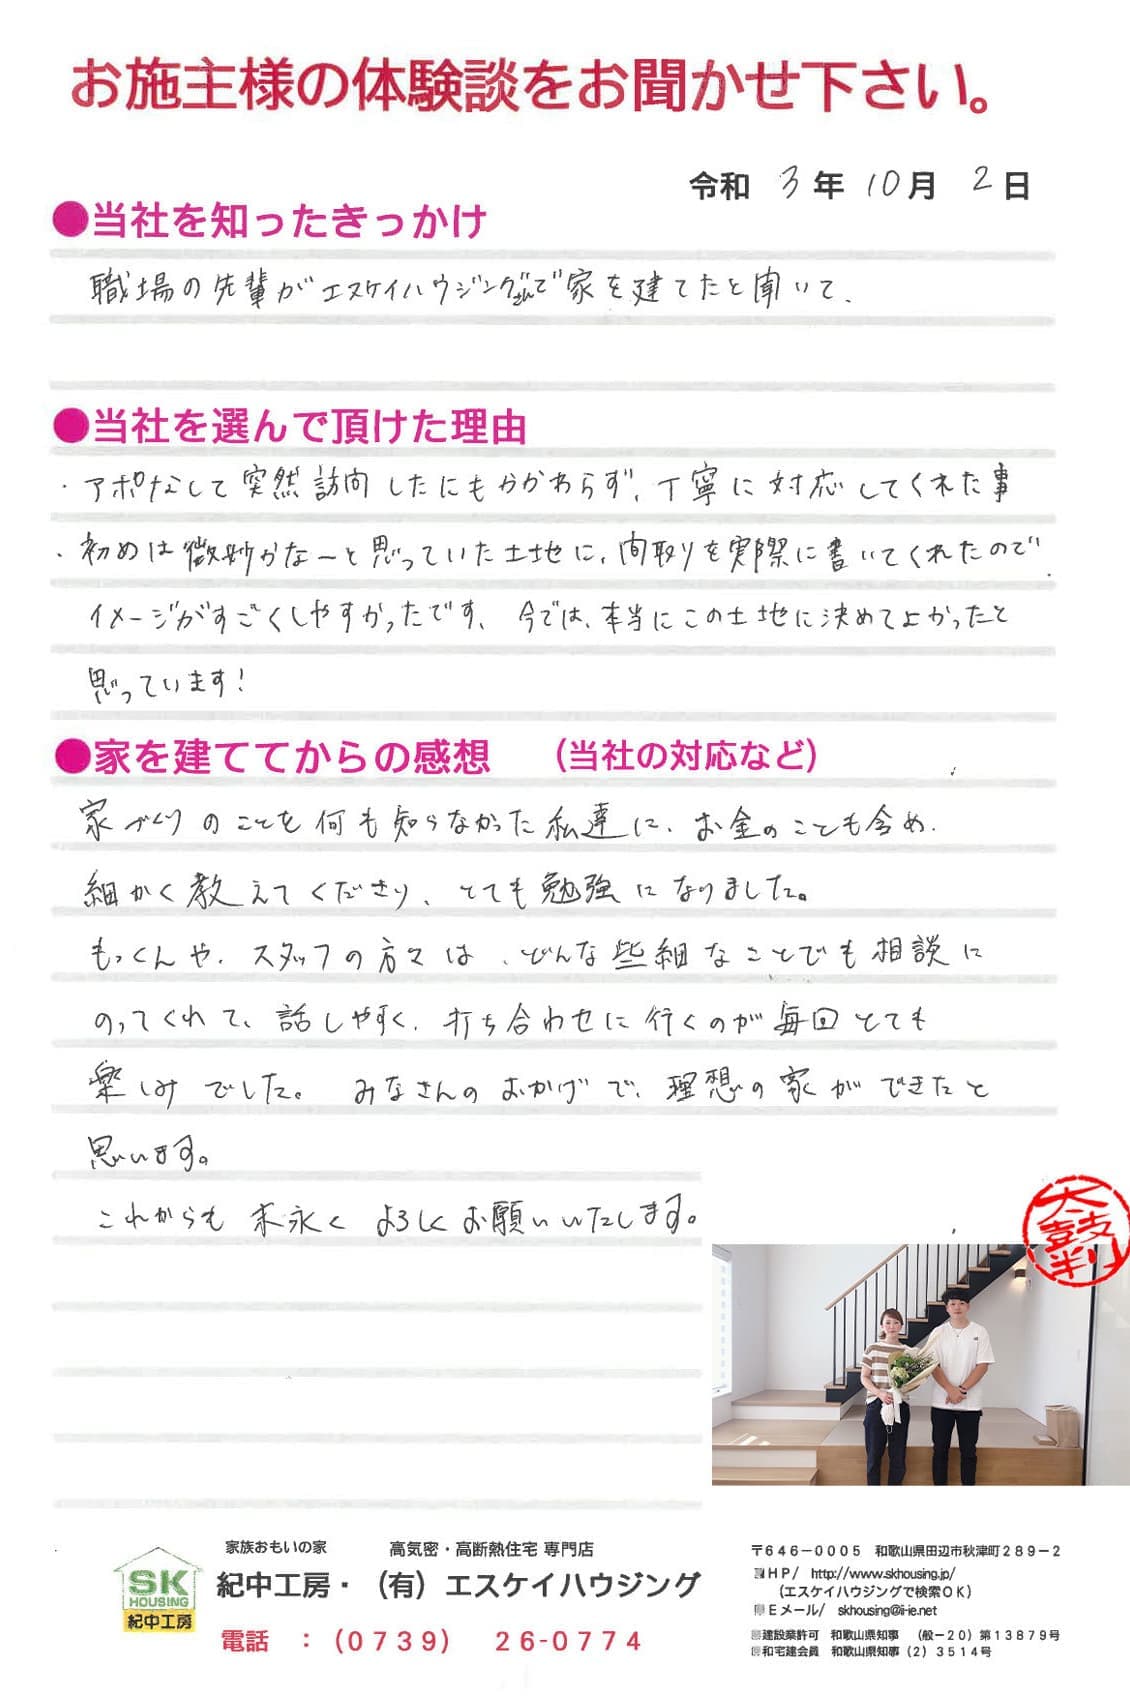 お施主様の体験談をお聞かせ下さい。
令和 3年 10月 2日
●当社を知ったきっかけ
職場の先輩がエスケイハウジングさんで家を建てたと聞いて、
●当社を選んで頂けた理由
・アポなしで突然訪問したにもかかわらず、丁寧に対応してくれた事
・初めは微妙かな〜と思っていた土地に、間取りを実際に書いてくれたので、
イメージがすごくしやすかったです、今では、本当にこの土地に決めてよかったと
思っています!
●家を建ててからの感想 (当社の対応など)
家づくりのことを何も知らなかった私達に、お金のことも含め、
細かく教えてくださり、とても勉強になりました。
もっくんや、スタッフの方々は、どんな些細なことでも相談に
のってくれて、話しやすく、打ち合わせに行くのが毎回とても
楽しみでした。 みなさんのおかげで、理想の家ができたと
思います。
これからも末永くよろしくお願いいたします。
太鼓判
SK
HOUSING
紀中工房
家族おもいの家 高気密・高断熱住宅 専門店
紀中工房・(有)エスケイハウジング
電話 :(0739) 26-0774
〒646-0005 和歌山県田辺市秋津町289-2
HP/ http://www.skhousing.jp/
(エスケイハウジングで検索OK)
Eメール/ skhousing@i-ie.net
建設業許可 和歌山県知事 (般-20)第13879号
和宅建会員 和歌山県知事(2)3514号